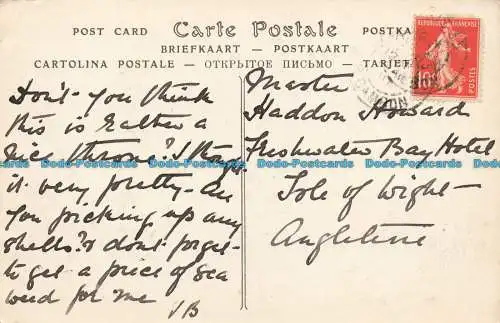 POST CARD Carte Postale POSTKARTE
BRIEFKAART — POSTKAART
CARTOLINA POSTALE — ОТКРЫТОЕ ПИСЬМО — TARJET
REPUBLIQUE FRANÇAISE
10
POSTES
Don't you think
this is rather a
nice throne? I thought
it very pretty - are
you picking up any
shells? & dont forget
to get a piece of sea
weed for me
JB
Master
Haddon Howard
Freshwater Bay Hotel
Isle of Wight -
Angleterre
Dodo-Postcards Dodo-Postcards Dodo-Postcards Dodo-Postcards Dodo-Postcards